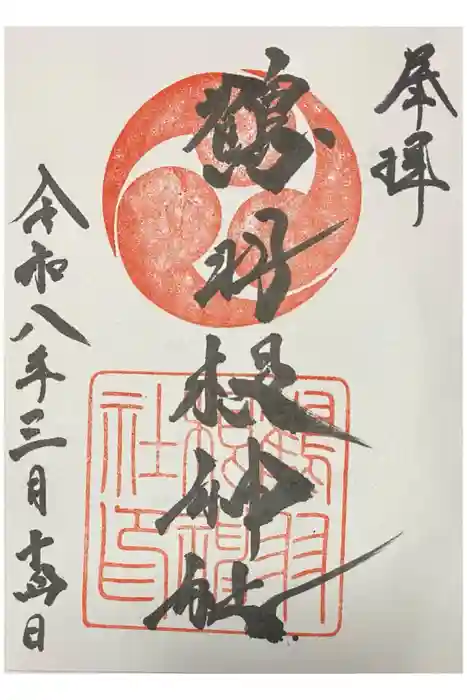 奉拝
鶴羽根神社
令和八年三月十四日
鶴羽
根神
社印